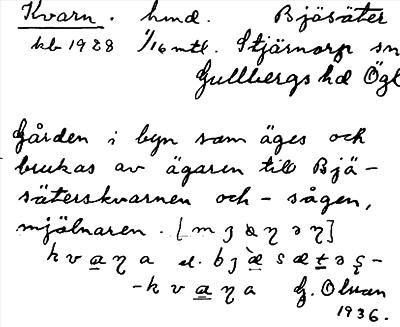 Kvarn. hmd. Bjäsäter
kb 1928 1/16 mtl. Stjärnorp sn
Gullbergs hd Ögl
Gården i byn som äges och
brukas av ägaren till Bjä-
säterskvarnen och - sågen,
mjölnaren.
kvaɳa el. bjæsætəʂ-
-kvaɳa G. Olson
1936.